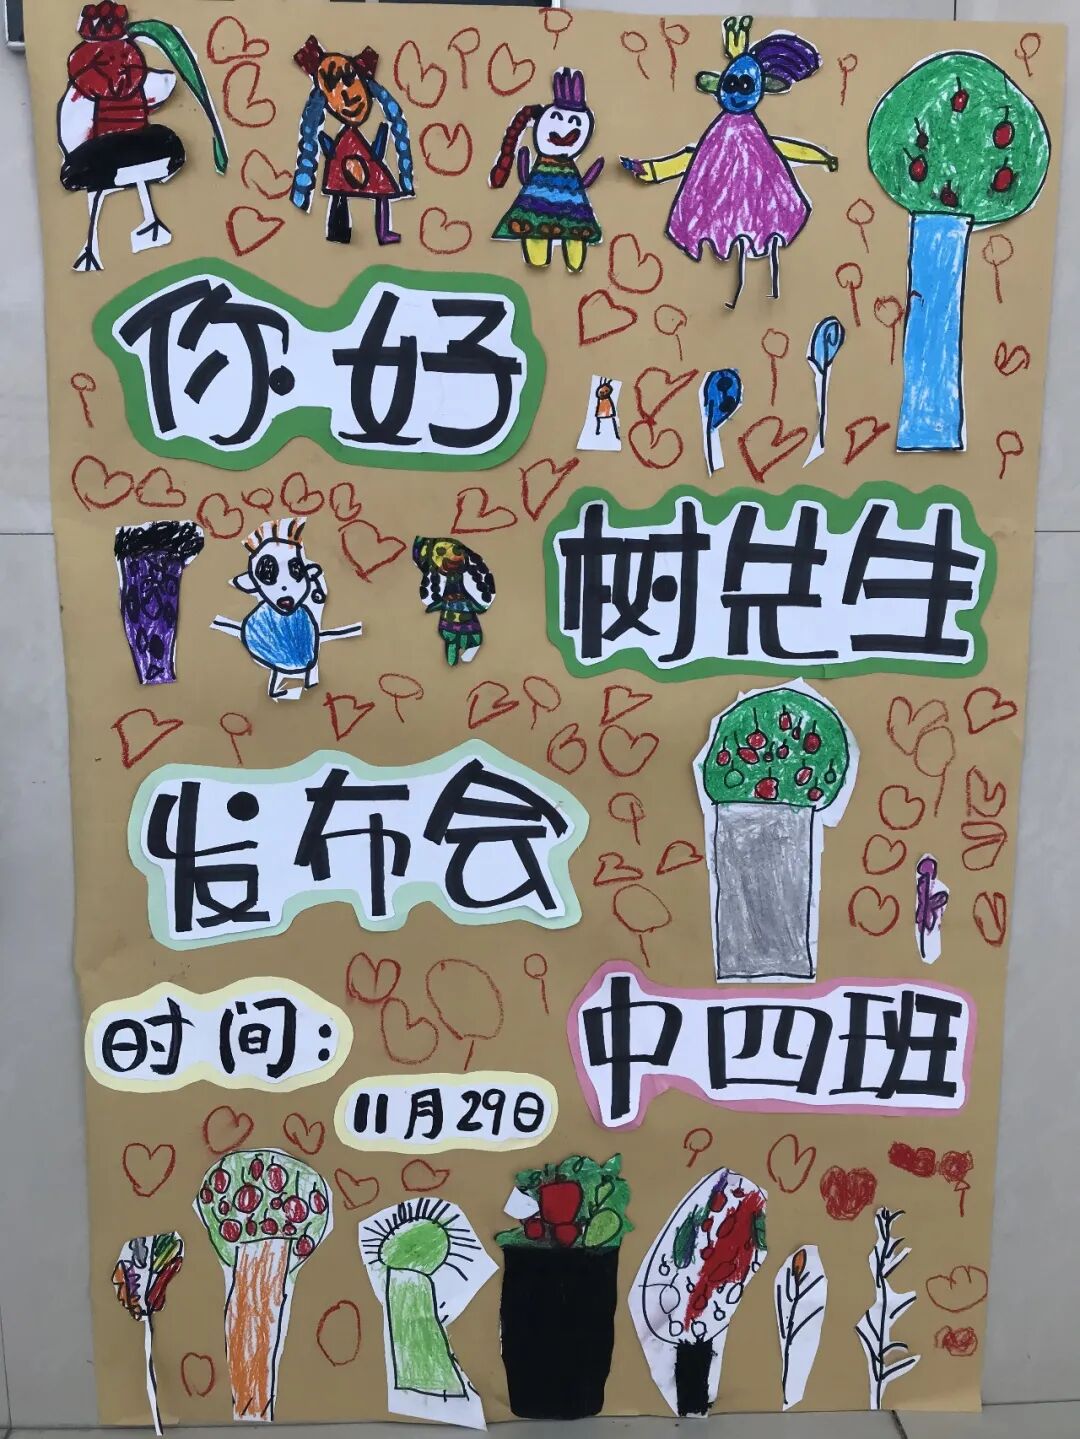 你好
树先生
发布会
时间:
中四班
11月29日